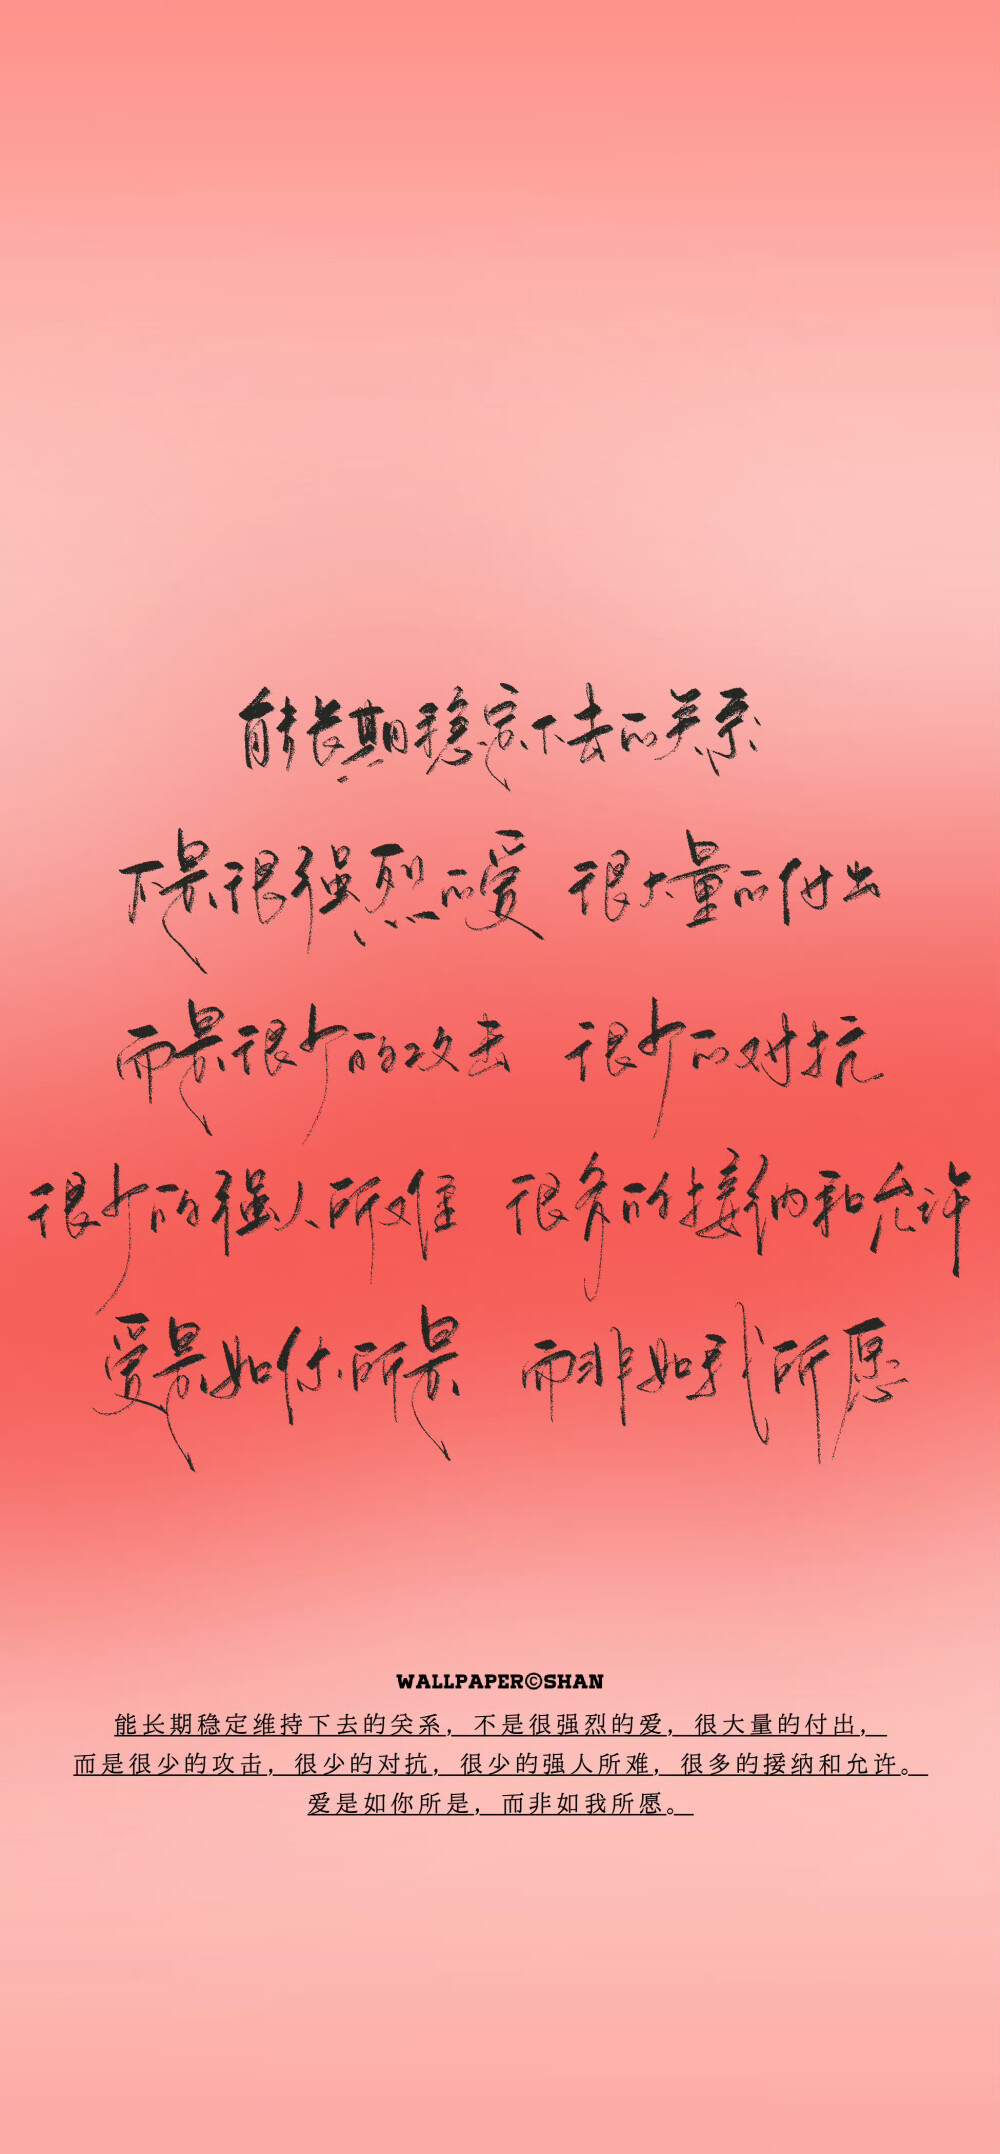 能长期稳定下去的关系
不是很强烈的爱 很大量的付出
而是很少的攻击 很少的对抗
很少的强人所难 很多的接纳和允许
爱是如你所是 而非如我所愿
WALLPAPER©SHAN
能长期稳定维持下去的关系，不是很强烈的爱，很大量的付出，
而是很少的攻击，很少的对抗，很少的强人所难，很多的接纳和允许。
爱是如你所是，而非如我所愿。